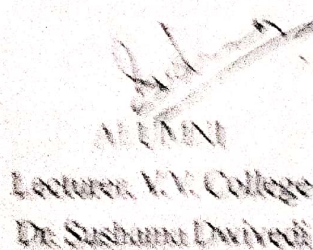 ALUMNI
Lecturer, V.V. College
Dr. Sushama Dwivedi